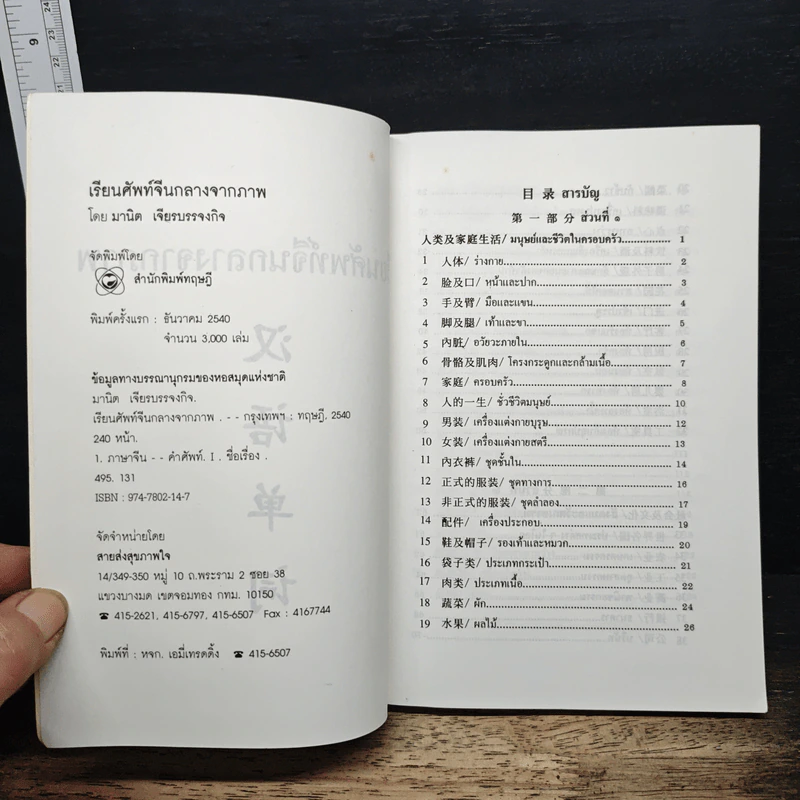 เรียนศัพท์จีนกลางจากภาพ
โดย มานิต เจียรบรรจงกิจ
จัดพิมพ์โดย
สำนักพิมพ์ทฤษฎี
พิมพ์ครั้งแรก : ธันวาคม 2540
จำนวน 3,000 เล่ม
ข้อมูลทางบรรณานุกรมของหอสมุดแห่งชาติ
มานิต เจียรบรรจงกิจ.
เรียนศัพท์จีนกลางจากภาพ . - - กรุงเทพฯ : ทฤษฎี, 2540
240 หน้า.
1. ภาษาจีน - - คำศัพท์. I . ชื่อเรื่อง .
495. 131
ISBN : 974-7802-14-7
จัดจำหน่ายโดย
สายส่งสุขภาพใจ
14/349-350 หมู่ 10 ถ.พระราม 2 ซอย 38
แขวงบางมด เขตจอมทอง กทม. 10150
☎ 415-2621, 415-6797, 415-6507 Fax : 4167744
พิมพ์ที่ : หจก. เอมี่เทรดดิ้ง ☎ 415-6507
目 录 สารบัญ
第 一 部 分 ส่วนที่ ๑
人类及家庭生活/ มนุษย์และชีวิตในครอบครัว.................. 1
1 人体/ ร่างกาย.................. 2
2 脸及口/ หน้าและปาก.................. 3
3 手及臂/ มือและแขน.................. 4
4 脚及腿/ เท้าและขา.................. 5
5 内脏/ อวัยวะภายใน.................. 6
6 骨骼及肌肉/ โครงกระดูกและกล้ามเนื้อ.................. 7
7 家庭/ ครอบครัว.................. 8
8 人的一生/ ชั่วชีวิตมนุษย์.................. 10
9 男装/ เครื่องแต่งกายบุรุษ.................. 12
10 女装/ เครื่องแต่งกายสตรี.................. 13
11 内衣裤/ ชุดชั้นใน.................. 14
12 正式的服装/ ชุดทางการ.................. 16
13 非正式的服装/ ชุดลำลอง.................. 17
14 配件/ เครื่องประกอบ.................. 19
15 鞋及帽子/ รองเท้าและหมวก.................. 20
16 袋子类/ ประเภทกระเป๋า.................. 21
17 肉类/ ประเภทเนื้อ.................. 22
18 蔬菜/ ผัก.................. 24
19 水果/ ผลไม้.................. 26